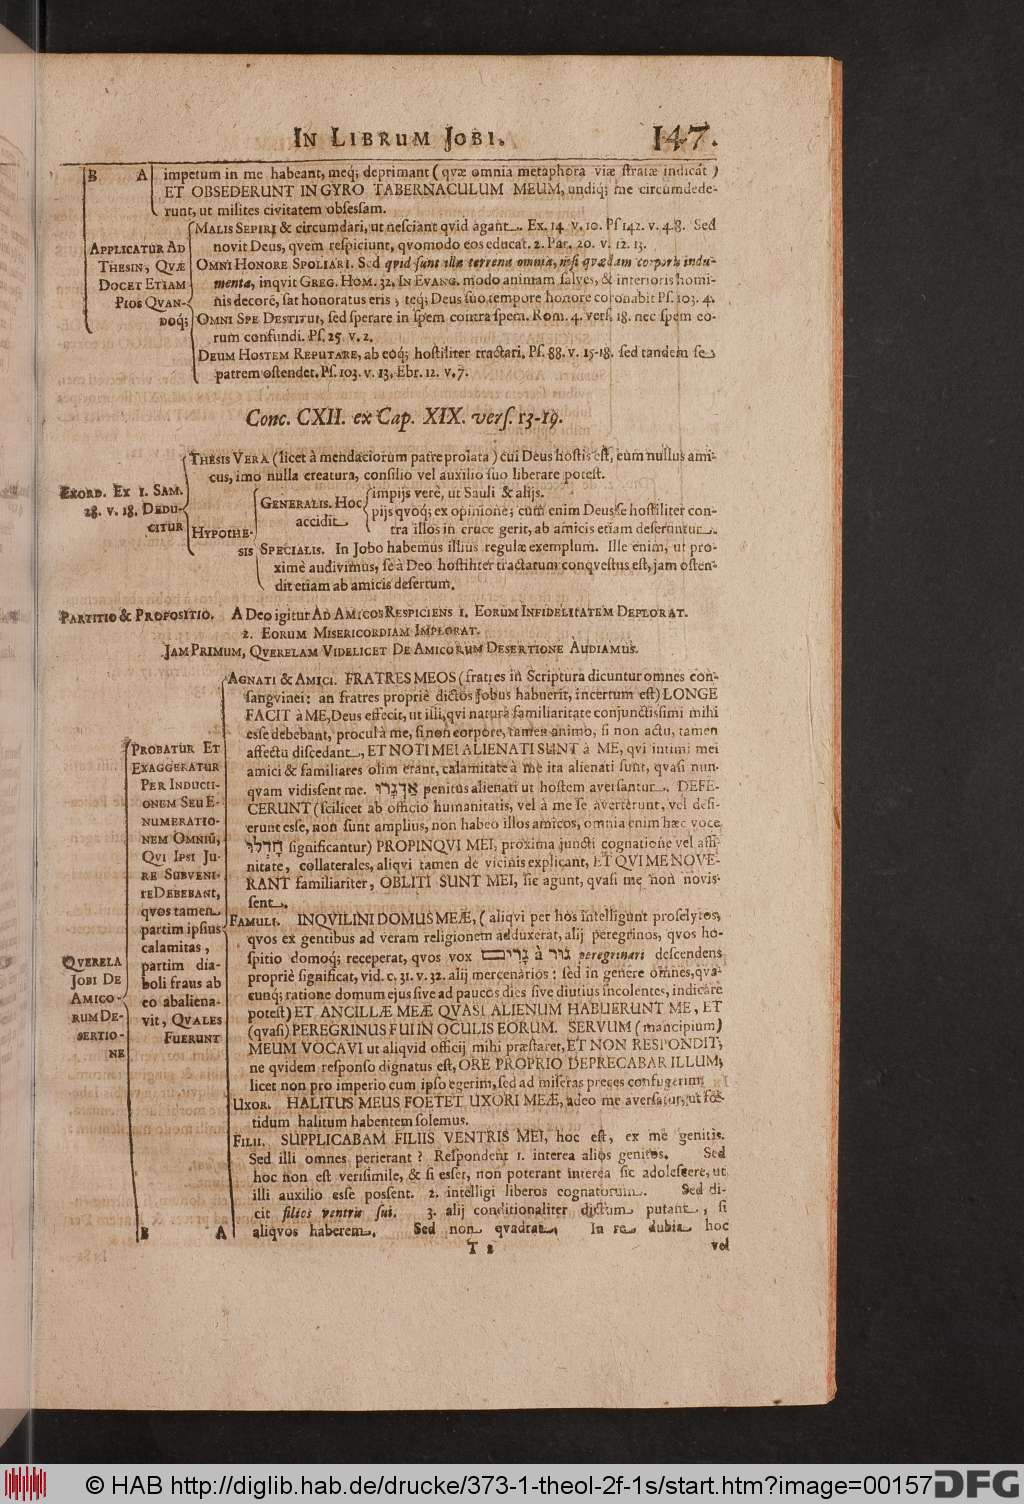 IN LIBRUM JOBI. 147.
B A impetum in me habeant, meq; deprimant ( qvæ omnia metaphora viæ stratæ indicãt )
ET OBSEDERUNT IN GYRO TABERNACULUM MEUM, undiq; me circumdede-
runt, ut milites civitatem obsessam.
APPLICATUR AD
THESIN, QVÆ
DOCET ETIAM
PIOS QVAN-
DOQ;
MALIS SEPIRI & circumdari, ut nesciant qvid agant. Ex. 14. v. 10. Ps 142. v. 4.8. Sed
novit Deus, qvem respiciunt, qvomodo eos educat. 2. Par. 20. v. 12. 13.
OMNI HONORE SPOLIARI. Sed qvid sunt illa terrena omnia, nisi qvædam corporis indu-
menta, inqvit GREG. HOM. 32. IN EVANG. modo animam salves, & interioris homi-
nis decorẽ, sat honoratus eris; teq; Deus suo tempore honore coronabit Ps. 103. 4.
OMNI SPE DESTITUI, sed sperare in spem contra spem. Rom. 4. vers. 18. nec spem eo-
rum confundi. Ps. 25. v. 2.
DEUM HOSTEM REPUTARE, ab eoq; hostiliter tractari. Ps. 88. v. 15-18. sed tandem se
patrem ostendet. Ps. 103. v. 13. Ebr. 12. v. 7.
Conc. CXII. ex Cap. XIX. vers. 13-19.
EXORD. EX 1. SAM.
28. v. 18. DEDU-
CITUR
THESIS VERA (licet à mendaciorum patre prolata) cui Deus hostis est, eum nullus ami-
cus, imo nulla creatura, consilio vel auxilio suo liberare potest.
HYPOTHE-
SIS
GENERALIS. Hoc
accidit
impijs verè, ut Sauli & alijs.
pijs qvoq; ex opinione; cùm enim Deus se hostiliter con-
tra illos in cruce gerit, ab amicis etiam deseruntur.
SPECIALIS. In Jobo habemus illius regulæ exemplum. Ille enim, ut pro-
ximè audivimus, se à Deo hostiliter tractatum conqvestus est, jam osten-
dit etiam ab amicis desertum.
PARTITIO & PROPOSITIO. A Deo igitur AD AMICOS RESPICIENS 1. EORUM INFIDELITATEM DEPLORAT.
2. EORUM MISERICORDIAM IMPLORAT.
JAM PRIMUM, QVERELAM VIDELICET DE AMICORUM DESERTIONE AUDIAMUS.
QVERELA
JOBI DE
AMICO-
RUM DE-
SERTIO-
NE
PROBATUR ET
EXAGGERATUR
PER INDUCTI-
ONEM SEU E-
NUMERATIO-
NEM OMNIŨ,
QVI IPSI JU-
RE SUBVENI-
re DEBEBANT,
qvos tamen
partim ipsius
calamitas,
partim dia-
boli fraus ab
eo abaliena-
vit, QVALES
FUERUNT
AGNATI & AMICI. FRATRES MEOS (fratres in Scriptura dicuntur omnes con-
sangvinei: an fratres propriè dictos Jobus habuerit, incertum est) LONGE
FACIT à ME, Deus effecit, ut illi, qvi naturâ familiaritate conjunctissimi mihi
esse debebant, procul à me, si non corpore, tamen animo, si non actu, tamen
affectu discedant, ET NOTI MEI ALIENATI SUNT à ME, qvi intimi mei
amici & familiares olim erant, calamitate à me ita alienati sunt, qvasi nun-
qvam vidissent me. אַךְזָרוּ penitùs alienati ut hostem aversantur. DEFE-
CERUNT (scilicet ab officio humanitatis, vel à me se averterunt, vel desi-
erunt esse, non sunt amplius, non habeo illos amicos, omnia enim hæc voce
חָדְלוּ significantur) PROPINQVI MEI, proxima juncti cognatione vel affi-
nitate, collaterales, aliqvi tamen de vicinis explicant, ET QVI ME NOVE-
RANT familiariter, OBLITI SUNT MEI, sic agunt, qvasi me non novis-
sent.
FAMULI. INQVILINI DOMUS MEÆ, ( aliqvi per hos intelligunt proselytos,
qvos ex gentibus ad veram religionem adduxerat, alij peregrinos, qvos ho-
spitio domoq; receperat, qvos vox גָּרִים à גּוּר peregrinari descendens
propriè significat, vid. c. 31. v. 32. alij mercenarios: sed in genere omnes, qva-
cunq; ratione domum ejus sive ad paucos dies sive diutius incolentes, indicare
potest) ET ANCILLÆ MEÆ QVASI ALIENUM HABUERUNT ME, ET
(qvasi) PEREGRINUS FUI IN OCULIS EORUM. SERVUM (mancipium)
MEUM VOCAVI ut aliqvid officij mihi præstaret, ET NON RESPONDIT,
ne qvidem responso dignatus est, ORE PROPRIO DEPRECABAR ILLUM,
licet non pro imperio cum ipso egerim, sed ad miseras preces confugerim
UXOR. HALITUS MEUS FOETET UXORI MEÆ, adeo me aversatur, ut fœ-
tidum halitum habentem solemus.
FILII. SUPPLICABAM FILIIS VENTRIS MEI, hoc est, ex me genitis.
Sed illi omnes perierant? Respondent 1. interea alios genitos. Sed
hoc non est verisimile, & si esset, non poterant interea sic adolescere, ut
illi auxilio esse possent. 2. intelligi liberos cognatorum. Sed di-
cit filios ventris sui. 3. alij conditionaliter dictum putant, si
B A aliqvos haberem. Sed non qvadrat. In re dubia hoc
T 2 vel
© HAB http://diglib.hab.de/drucke/373-1-theol-2f-1s/start.htm?image=00157
DFG